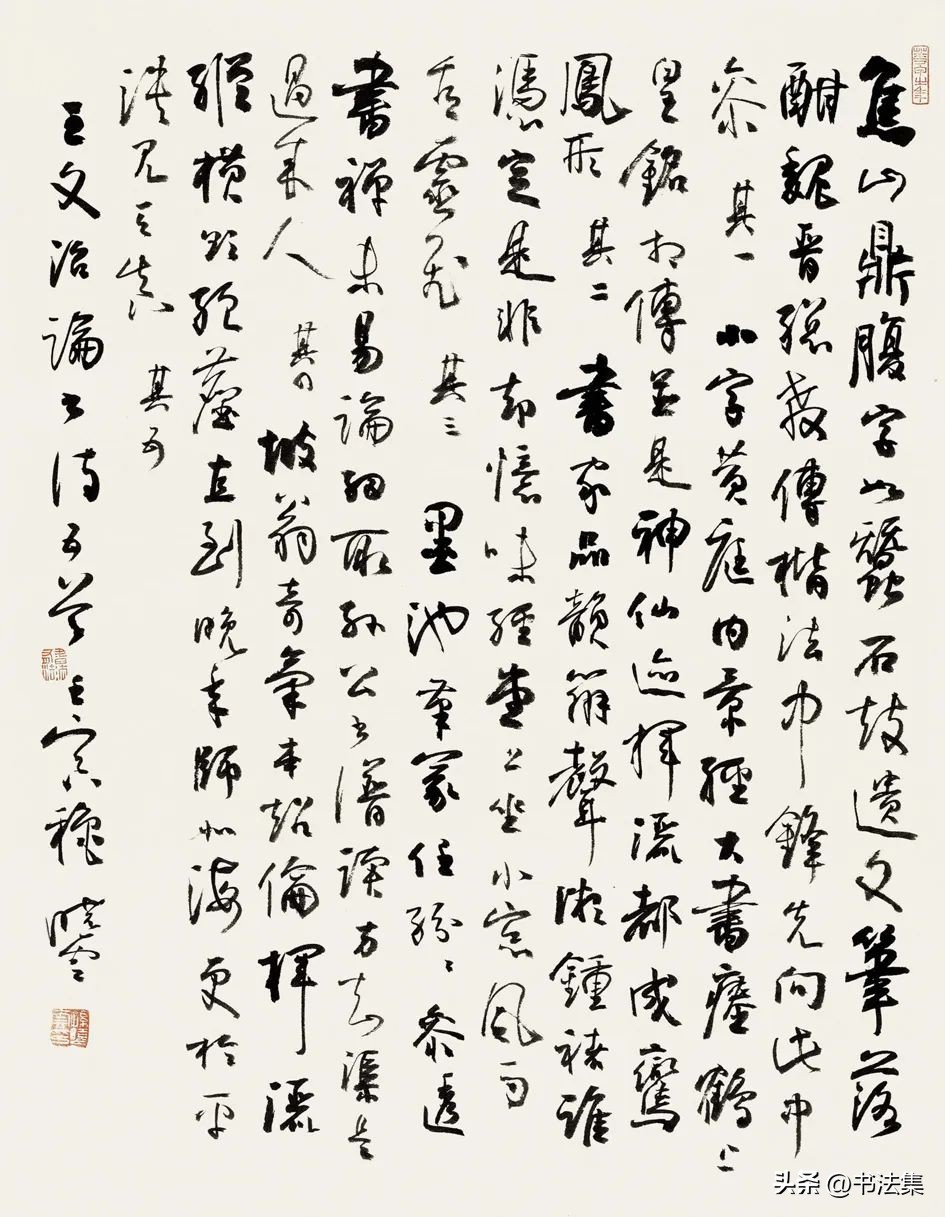 焦山鼎腹字如蠶石鼓遺文筆落
酣魏晉總教傳楷法中鋒先向此中
參 其一 小字黃庭內景經大書瘞鶴上
皇銘相傳並是神仙迹揮灑都成鸞
鳳形 其二 書家品韻辨聲鍾褚誰
憑定是非却憶味經堂上坐小窗風雨
古靈飛 其三 墨池筆冢任紛紛參透
書禪未易論細取孫公書譜讀方知渠是
過來人 其四 坡翁奇氣本超倫揮灑
縱橫欲絕塵直到晚年師北海更於平
淡見天真 其五
王文治論書詩五首 壬寅穐 曉雲
头条 @书法集